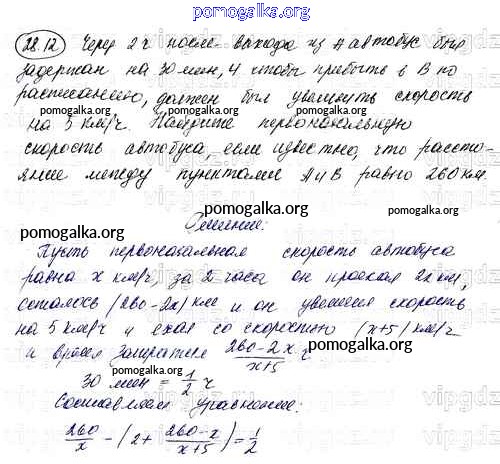 pomogalka.org
28.12 Через 2 ч после выхода из А автобус был
задержан на 30 мин, и чтобы прибыть в В по
расписанию, должен был увеличить скорость
pomogalka.org pomogalka.org
на 5 км/ч. Найдите первоначальную
скорость автобуса, если известно, что рассто-
яние между пунктами А и В равно 260 км.
pomogalka.org
Решение:
pomogalka.org pomogalka.org
Пусть первоначальная скорость автобуса
равна x км/ч, за 2 часа он проехал 2x км,
осталось (260-2x) км и он увеличил скорость
на 5 км/ч и ехал со скоростью (x+5) км/ч
pomogalka.org
и время затратил (260-2x)/(x+5) ч
pomogalka.org
30 мин = 1/2 ч
Составляем уравнение:
260/x - (2 + (260-x)/(x+5)) = 1/2
pomogalka.org